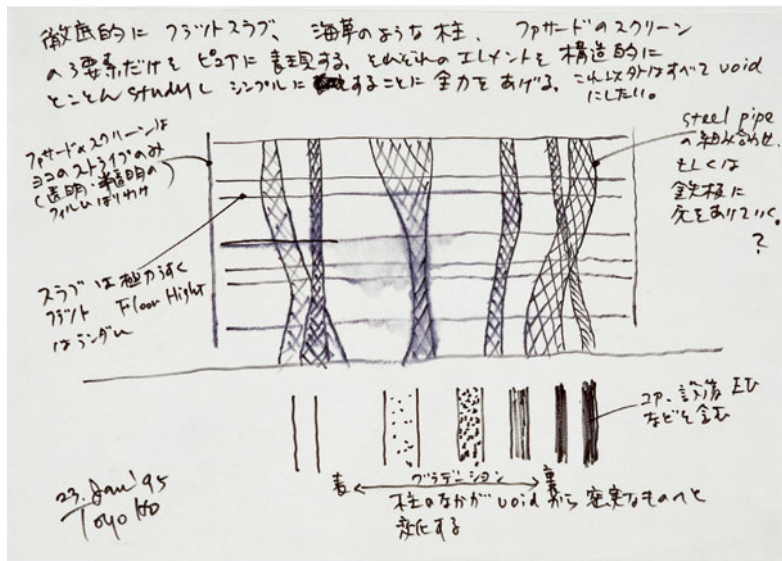 徹底的に フラットスラブ、 海草のような柱、 ファサードのスクリーン
の3要素だけを ピュアに表現する。それぞれのエレメントを 構造的に
とことん studyし シンプルに することに 全力をあげる。これ以外はすべて void
にしたい。
ファサードのスクリーンは
ヨコのストライプのみ
(透明・半透明の
フィルムはりわけ
スラブは極力うすく
フラット Floor Hight
はランダム
steel pipe
の組み合わせ、
もしくは
鉄板に
穴をあけていく。
?
コア、設備 EV
などを含む
表 グラデーション 裏
柱のなかが void から 密実なものへと
変化する
23. Jan' 95
Toyo Ito